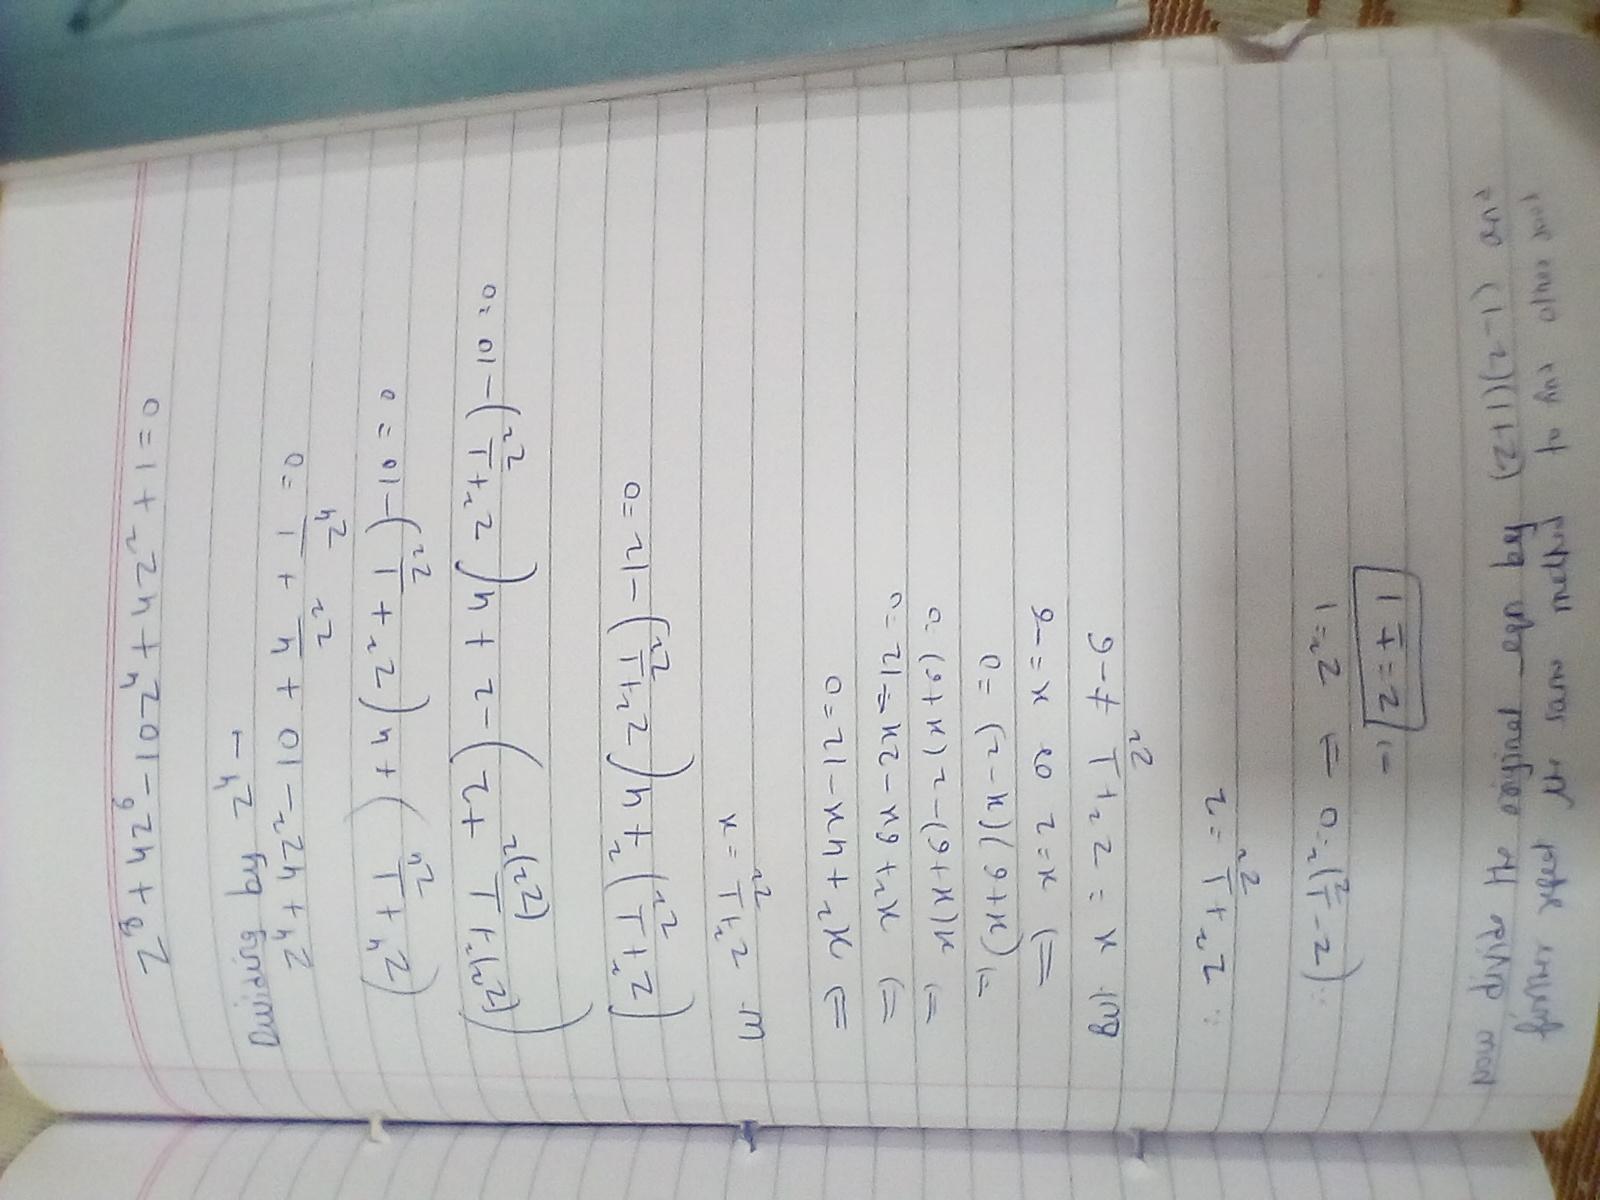 z⁸ + 4z⁶ - 10z⁴ + 4z² + 1 = 0
Dividing by z⁴ →
z⁴ + 4z² - 10 + 4/z² + 1/z⁴ = 0
(z⁴ + 1/z⁴) + 4(z² + 1/z²) - 10 = 0
((z²)² + 1/(z²)² + 2) - 2 + 4(z² + 1/z²) - 10 = 0
(z² + 1/z²)² + 4(z² + 1/z²) - 12 = 0
z² + 1/z² = x
⇒ x² + 4x - 12 = 0
⇒ x² + 6x - 2x - 12 = 0
= x(x+6) - 2(x+6) = 0
= (x+6)(x-2) = 0
⇒ x = 2 or x = -6
But x = z² + 1/z² ≠ -6
∴ z² + 1/z² = 2
∴ (z - 1/z)² = 0 ⇒ z² = 1
= z = ∓1
Now divide the original eqn by (z+1)(z-1) and
further repeat the same method to find other roots